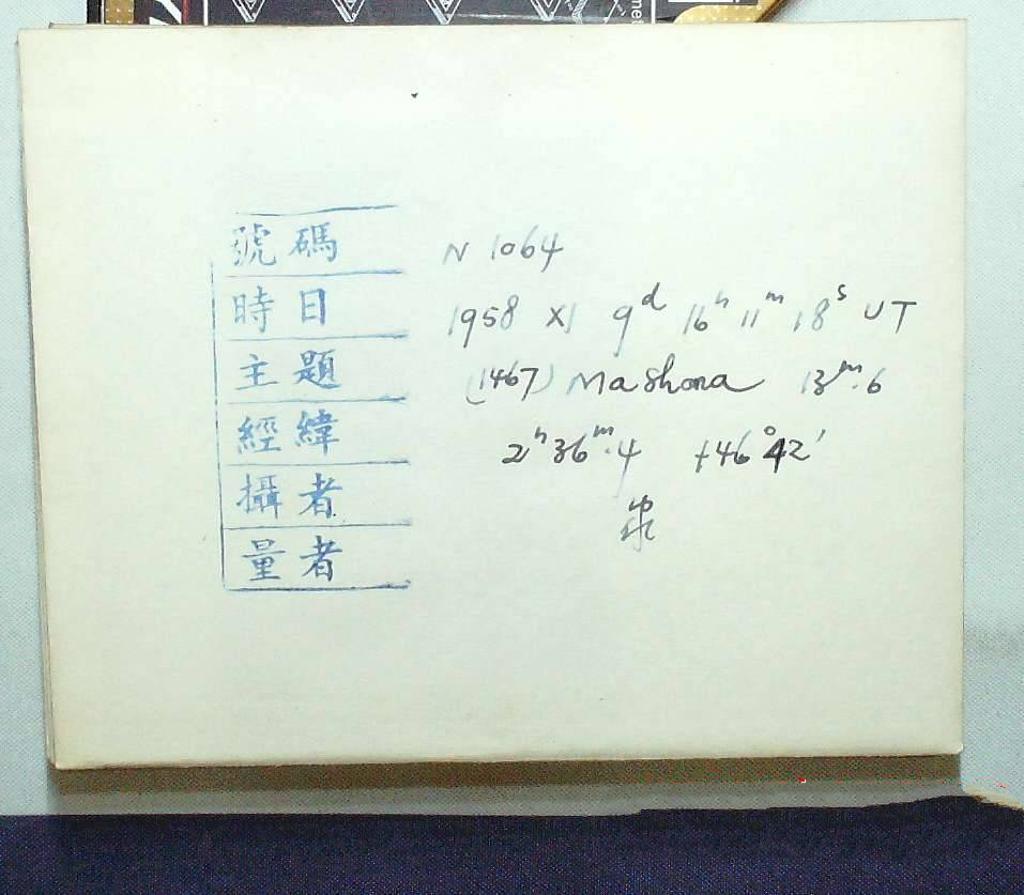 號碼 N 1064
時日 1958 XI 9ᵈ 16ʰ 11ᵐ 18ˢ UT
主題 (1467) Mashona 13ᵐ.6
經緯 2ʰ36ᵐ.4 +46°42′
攝者
量者